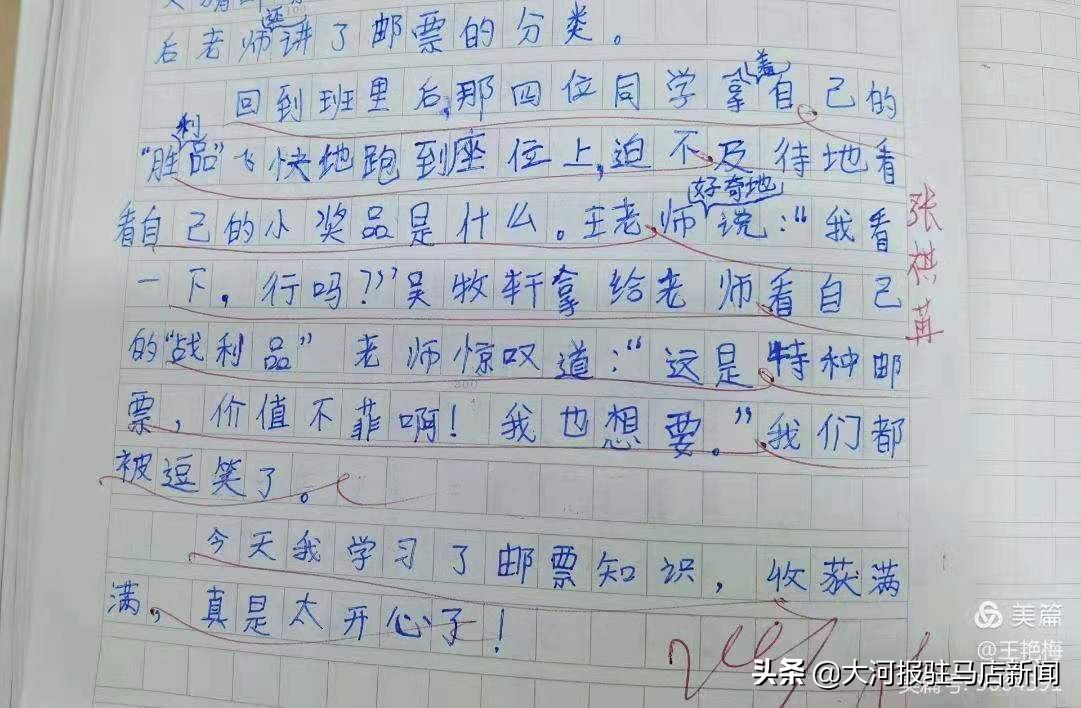 后老师还讲了邮票的分类。
回到班里后,那四位同学拿着自己的
“胜利品”飞快地跑到座位上,迫不及待地看
看自己的小奖品是什么。王老师好奇地说:“我看
一下,行吗?”吴牧轩拿给老师看自己
的“战利品” 老师惊叹道:“这是特种邮
票,价值不菲啊!我也想要。”我们都
被逗笑了。
今天我学习了邮票知识,收获满
满,真是太开心了!
张祺
美篇
@王艳梅
头条 @大河报驻马店新闻